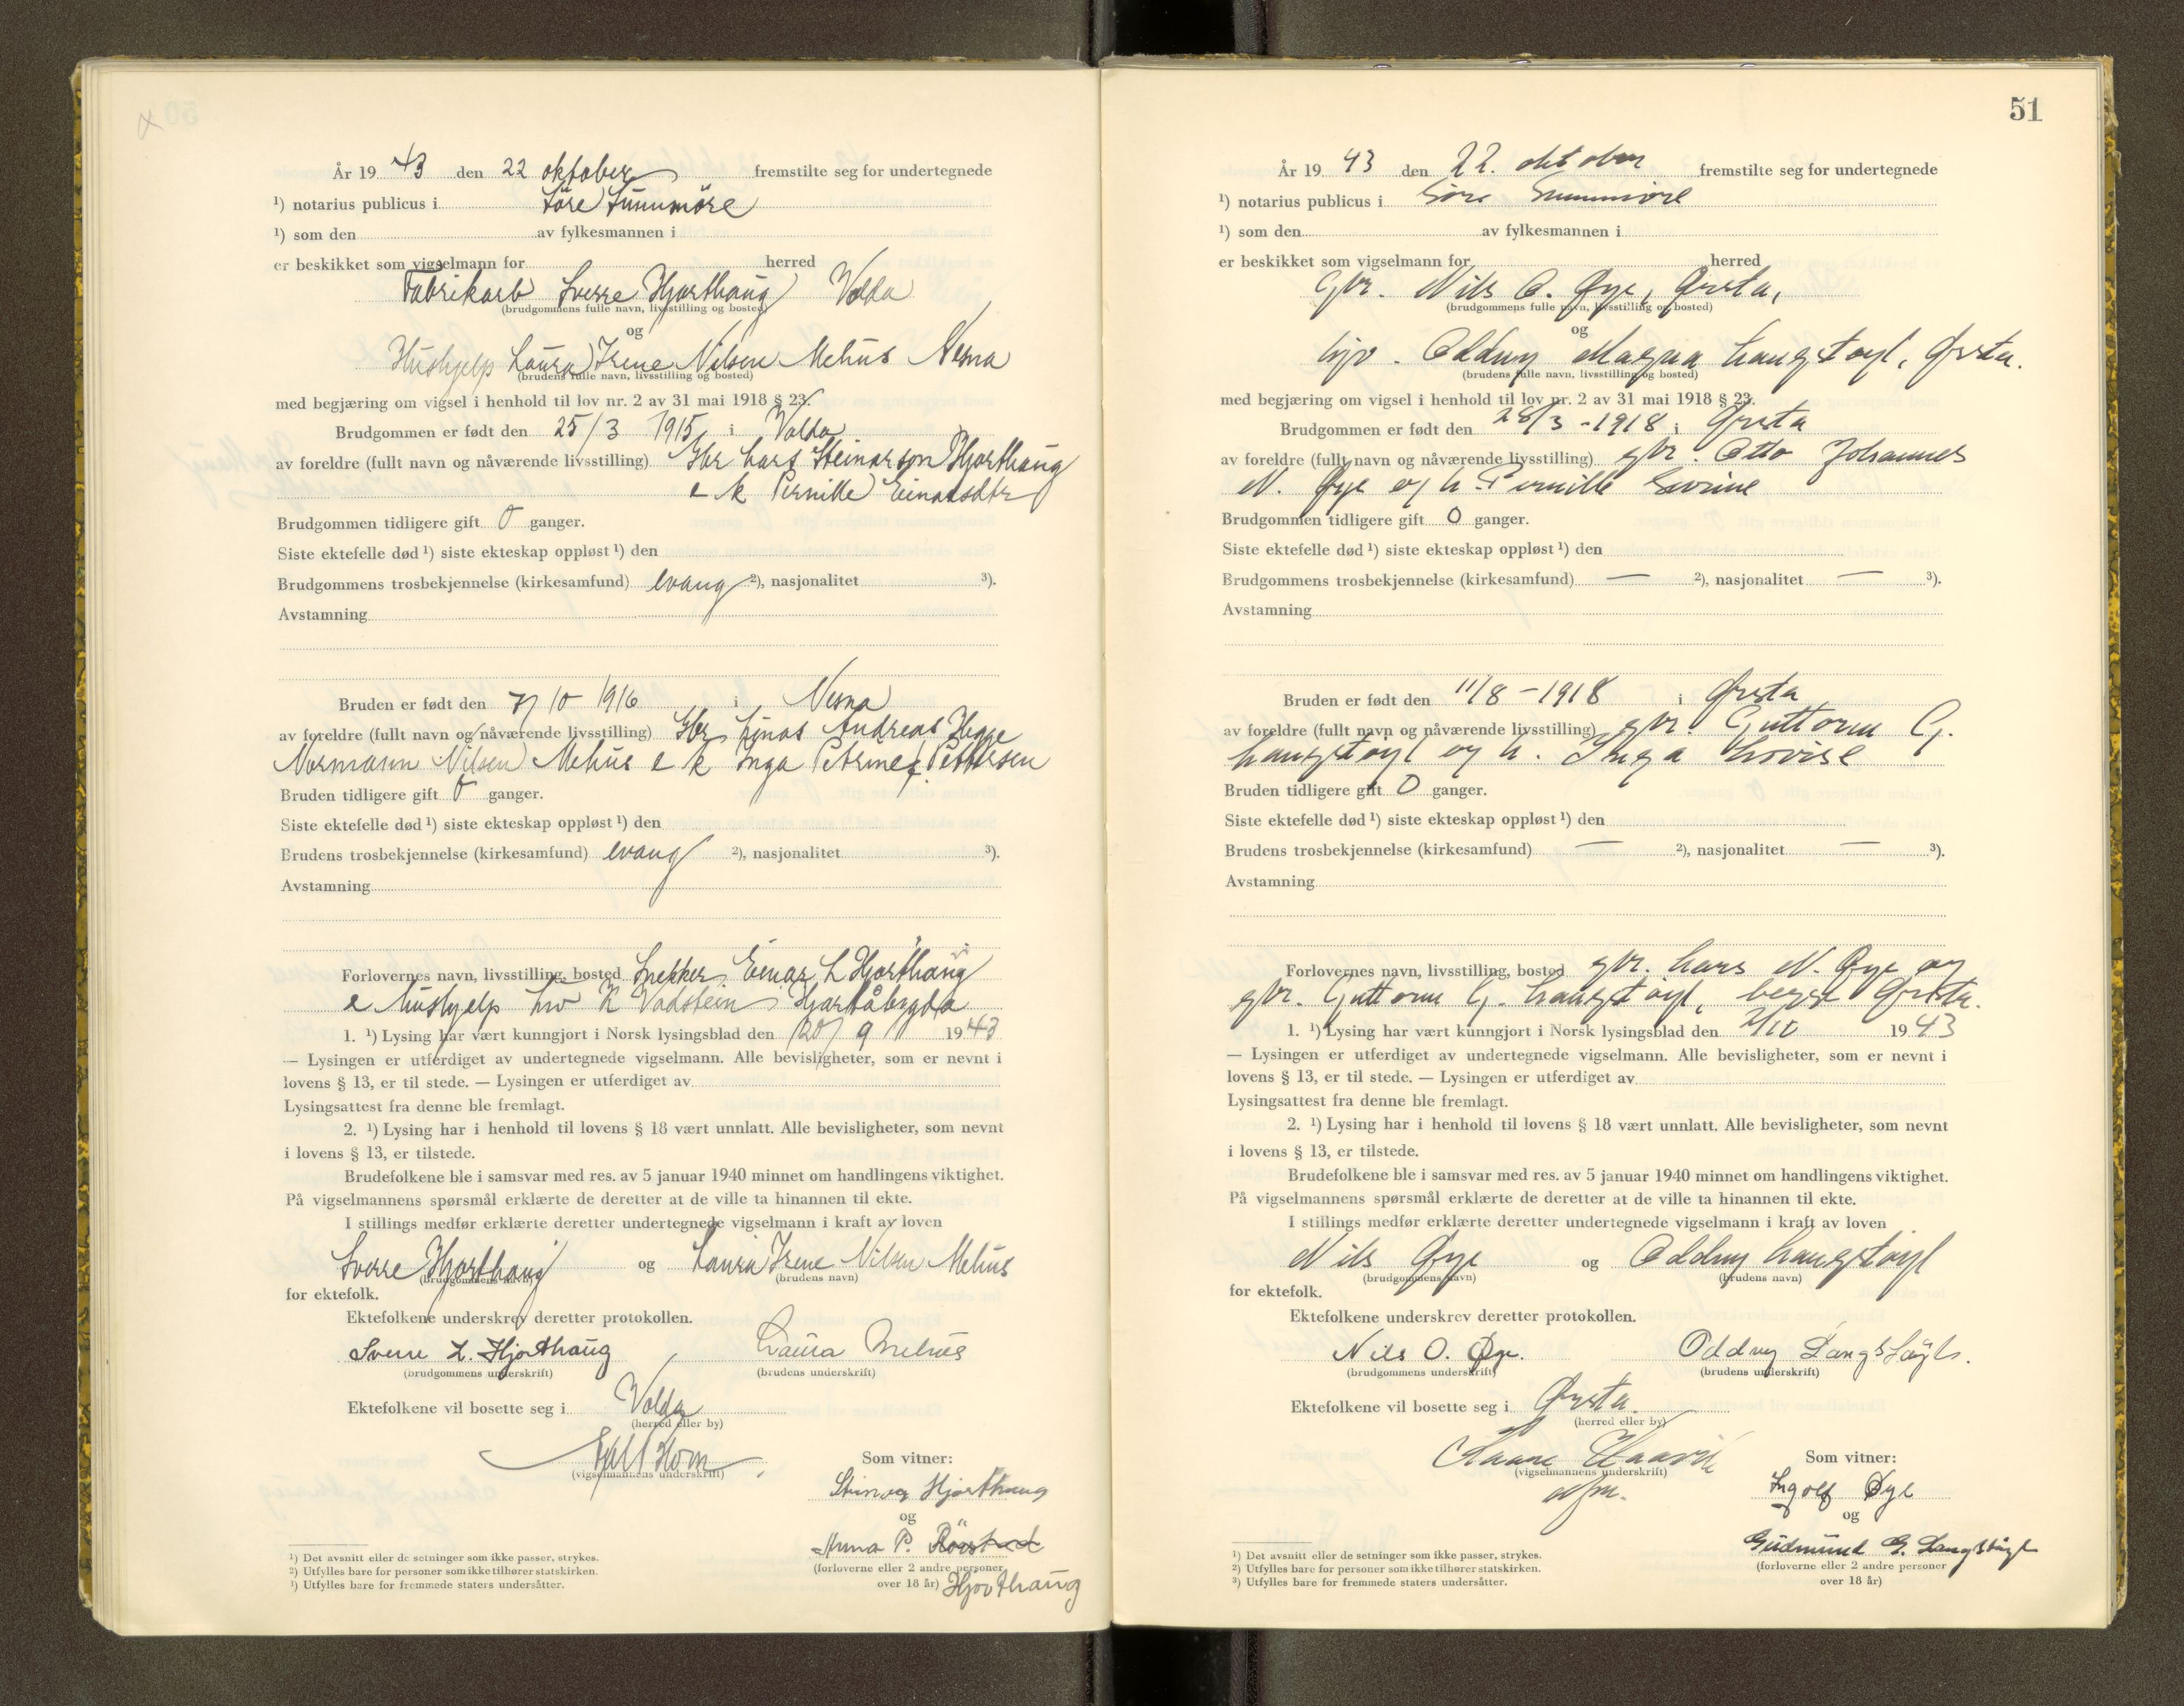 År 19 43 den 22 oktober fremstilte seg for undertegnede
¹) notarius publicus i Søre Sunnmøre
¹) som den av fylkesmannen i
er beskikket som vigselmann for herred
Fabrikarb Sverre Hjorthaug Volda
(brudgommens fulle navn, livsstilling og bosted)
og
Hushjelp Laura Irene Nilsen Mehus Nesna
(brudens fulle navn, livsstilling og bosted)
med begjæring om vigsel i henhold til lov nr. 2 av 31 mai 1918 § 23.
Brudgommen er født den 25/3 1915 i Volda
av foreldre (fullt navn og nåværende livsstilling) Gbr Lars Steinarson Hjorthaug
e k Pernille Einarsdtr
Brudgommen tidligere gift 0 ganger.
Siste ektefelle død ¹) siste ekteskap oppløst ¹) den
Brudgommens trosbekjennelse (kirkesamfund) evang ²), nasjonalitet ³).
Avstamning
Bruden er født den 7/10 1916 i Nesna
av foreldre (fullt navn og nåværende livsstilling) Gbr Andreas Hegge
Normann Nilsen Mehus e k Inga Petrine f Pettersen
Bruden tidligere gift 0 ganger.
Siste ektefelle død ¹) siste ekteskap oppløst ¹) den
Brudens trosbekjennelse (kirkesamfund) evang ²), nasjonalitet ³).
Avstamning
Forlovernes navn, livsstilling, bosted Snekker Einar L Hjorthaug
e hushjelp Liv K Vadstein Hjartåbygda
1. ¹) Lysing har vært kunngjort i Norsk lysingsblad den 20/9 1943
— Lysingen er utferdiget av undertegnede vigselmann. Alle bevisligheter, som er nevnt i
lovens § 13, er til stede. — Lysingen er utferdiget av
Lysingsattest fra denne ble fremlagt.
2. ¹) Lysing har i henhold til lovens § 18 vært unnlatt. Alle bevisligheter, som nevnt
i lovens § 13, er tilstede.
Brudefolkene ble i samsvar med res. av 5 januar 1940 minnet om handlingens viktighet.
På vigselmannens spørsmål erklærte de deretter at de ville ta hinannen til ekte.
I stillings medfør erklærte deretter undertegnede vigselmann i kraft av loven
Sverre Hjorthaug og Laura Irene Nilsen Mehus
(brudgommens navn) (brudens navn)
for ektefolk.
Ektefolkene underskrev deretter protokollen.
Sverre L. Hjorthaug Laura Mehus
(brudgommens underskrift) (brudens underskrift)
Ektefolkene vil bosette seg i Volda
(herred eller by)
(vigselmannens underskrift)
Som vitner:
Steinar Hjorthaug
og
Anna P. Røvstad
(forloverne eller 2 andre personer
over 18 år) Hjorthaug
¹) Det avsnitt eller de setninger som ikke passer, strykes.
²) Utfylles bare for personer som ikke tilhører statskirken.
³) Utfylles bare for fremmede staters undersåtter.
51
År 19 43 den 22. oktober fremstilte seg for undertegnede
¹) notarius publicus i Søre Sunnmøre
¹) som den av fylkesmannen i
er beskikket som vigselmann for herred
Gbr. Nils O. Øye, Ørsta,
(brudgommens fulle navn, livsstilling og bosted)
og
Oddny Magna Langstøyl, Ørsta.
(brudens fulle navn, livsstilling og bosted)
med begjæring om vigsel i henhold til lov nr. 2 av 31 mai 1918 § 23.
Brudgommen er født den 28/3 - 1918 i Ørsta
av foreldre (fullt navn og nåværende livsstilling) gbr. Otto Johannes
N. Øye og h. Pernille Sevrine
Brudgommen tidligere gift 0 ganger.
Siste ektefelle død ¹) siste ekteskap oppløst ¹) den
Brudgommens trosbekjennelse (kirkesamfund) — ²), nasjonalitet — ³).
Avstamning
Bruden er født den 11/8 - 1918 i Ørsta
av foreldre (fullt navn og nåværende livsstilling) gbr. Guttorm G.
Langstøyl og h. Inga Lovise
Bruden tidligere gift 0 ganger.
Siste ektefelle død ¹) siste ekteskap oppløst ¹) den
Brudens trosbekjennelse (kirkesamfund) — ²), nasjonalitet — ³).
Avstamning
Forlovernes navn, livsstilling, bosted gbr. Lars N. Øye og
gbr. Guttorm G. Langstøyl, begge Ørsta.
1. ¹) Lysing har vært kunngjort i Norsk lysingsblad den 2/10 1943
— Lysingen er utferdiget av undertegnede vigselmann. Alle bevisligheter, som er nevnt i
lovens § 13, er til stede. — Lysingen er utferdiget av
Lysingsattest fra denne ble fremlagt.
2. ¹) Lysing har i henhold til lovens § 18 vært unnlatt. Alle bevisligheter, som nevnt
i lovens § 13, er tilstede.
Brudefolkene ble i samsvar med res. av 5 januar 1940 minnet om handlingens viktighet.
På vigselmannens spørsmål erklærte de deretter at de ville ta hinannen til ekte.
I stillings medfør erklærte deretter undertegnede vigselmann i kraft av loven
Nils Øye og Oddny Langstøyl
(brudgommens navn) (brudens navn)
for ektefolk.
Ektefolkene underskrev deretter protokollen.
Nils O. Øye. Oddny Langstøyl.
(brudgommens underskrift) (brudens underskrift)
Ektefolkene vil bosette seg i Ørsta.
(herred eller by)
Haavik
(vigselmannens underskrift)
Som vitner:
Ingolf Øye
og
Gudmund G. Langstøyl
(forloverne eller 2 andre personer
over 18 år)
¹) Det avsnitt eller de setninger som ikke passer, strykes.
²) Utfylles bare for personer som ikke tilhører statskirken.
³) Utfylles bare for fremmede staters undersåtter.